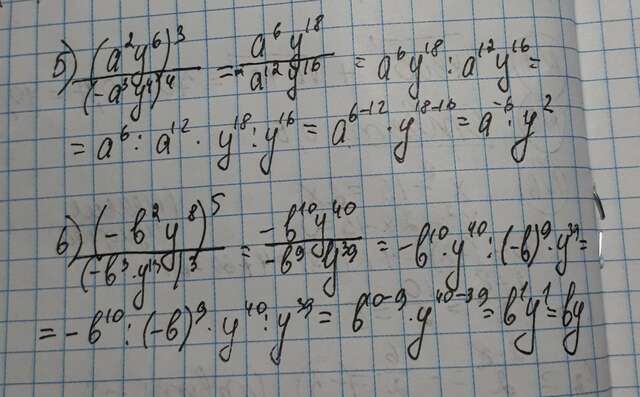 5) (a²y⁶)³/(-a³y⁴)⁴ = a⁶y¹⁸/a¹²y¹⁶ = a⁶y¹⁸ : a¹²y¹⁶ =
= a⁶ : a¹² · y¹⁸ : y¹⁶ = a⁶⁻¹² · y¹⁸⁻¹⁶ = a⁻⁶ · y²
6) (-b²y⁸)⁵/(-b³·y¹³)³ = -b¹⁰y⁴⁰/-b⁹y³⁹ = -b¹⁰·y⁴⁰ : (-b)⁹·y³⁹ =
= -b¹⁰ : (-b)⁹ · y⁴⁰ : y³⁹ = b¹⁰⁻⁹ · y⁴⁰⁻³⁹ = b¹y¹ = by